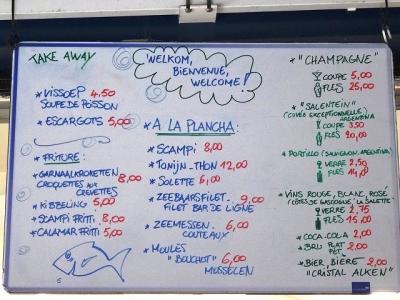 TAKE AWAY
* VISSOEP 4,50
SOUPE DE POISSON
* ESCARGOTS 5,00
* FRITURE:
* GARNAALKROKETTEN 8,00
CROQUETTES AUX
CREVETTES
* KIBBELING 5,00
* SCAMPI FRITTI 8,00
* CALAMAR FRITTI 5,00
WELKOM,
BIENVENUE,
WELCOME!
* A LA PLANCHA:
* SCAMPI 8,00
* TONIJN-THON 12,00
* SOLETTE 6,00
* ZEEBAARSFILET- 9,00
FILET BAR DE LIGNE
* ZEEMESSEN- 6,00
COUTEAUX
* MOULES
"BOUCHOT" 6,00
MOSSELEN
* "CHAMPAGNE"
COUPE 5,00
FLES 25,00
* "SALENTEIN"
(CUVÉE EXCEPTIONNELLE) ARGENTINA
COUPE 3,50
FLES 20,00
PORTILLO (SAUVIGNON. ARGENTINA)
VERRE 2,50
FLES 14,00
VINS ROUGE, BLANC, ROSÉ
(CÔTES DE GASCOGNE "LA SALETTE")
VERRE 2,75
FLES 15,00
* COCA-COLA 2,00
* BRU PLAT 2,00
PÉT.
* BIER, BIÈRE 2,00
"CRISTAL ALKEN"